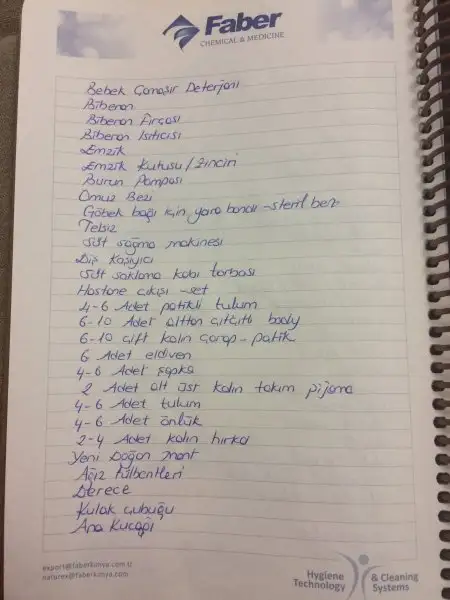 Faber
CHEMICAL & MEDICINE
Bebek Çamaşır Deterjanı
Biberon
Biberon Fırçası
Biberon Isıtıcısı
Emzik
Emzik Kutusu / Zinciri
Burun Pompası
Omuz Bezi
Göbek bağı için yara bandı - steril bez
Telsiz
Süt sağma makinesi
Diş Kaşıyıcı
Süt saklama kabı torbası
Hastane çıkışı - set
4-6 Adet patikli tulum
6-10 Adet alttan çıtçıtlı body
6-10 çift kalın çorap - patik
6 Adet eldiven
4-6 Adet şapka
2 Adet alt üst kalın takım pijama
4-6 Adet tulum
4-6 Adet önlük
2-4 Adet kalın hırka
Yeni Doğan mont
Ağız tülbentleri
Derece
Kulak çubuğu
Ana Kucağı
export@faberkimya.com.tr
naturex@faberkimya.com
Hygiene & Cleaning
Technology Systems